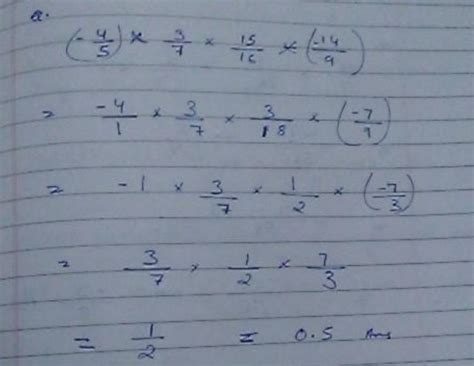 a.
(-4/5) × 3/7 × 15/16 × (-14/9)
= -4/1 × 3/7 × 3/8 × (-7/9)
= -1 × 3/7 × 1/2 × (-7/3)
= 3/7 × 1/2 × 7/3
= 1/2 = 0.5 Ans